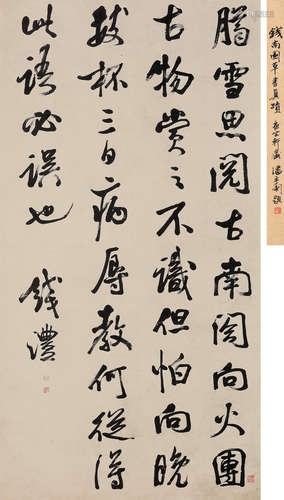 腊雪思閱古南閣向火團
古物賞之不識但怕向晚
拔杯三日病辱教何從得
此語必誤也
錢灃
錢南園草書真蹟